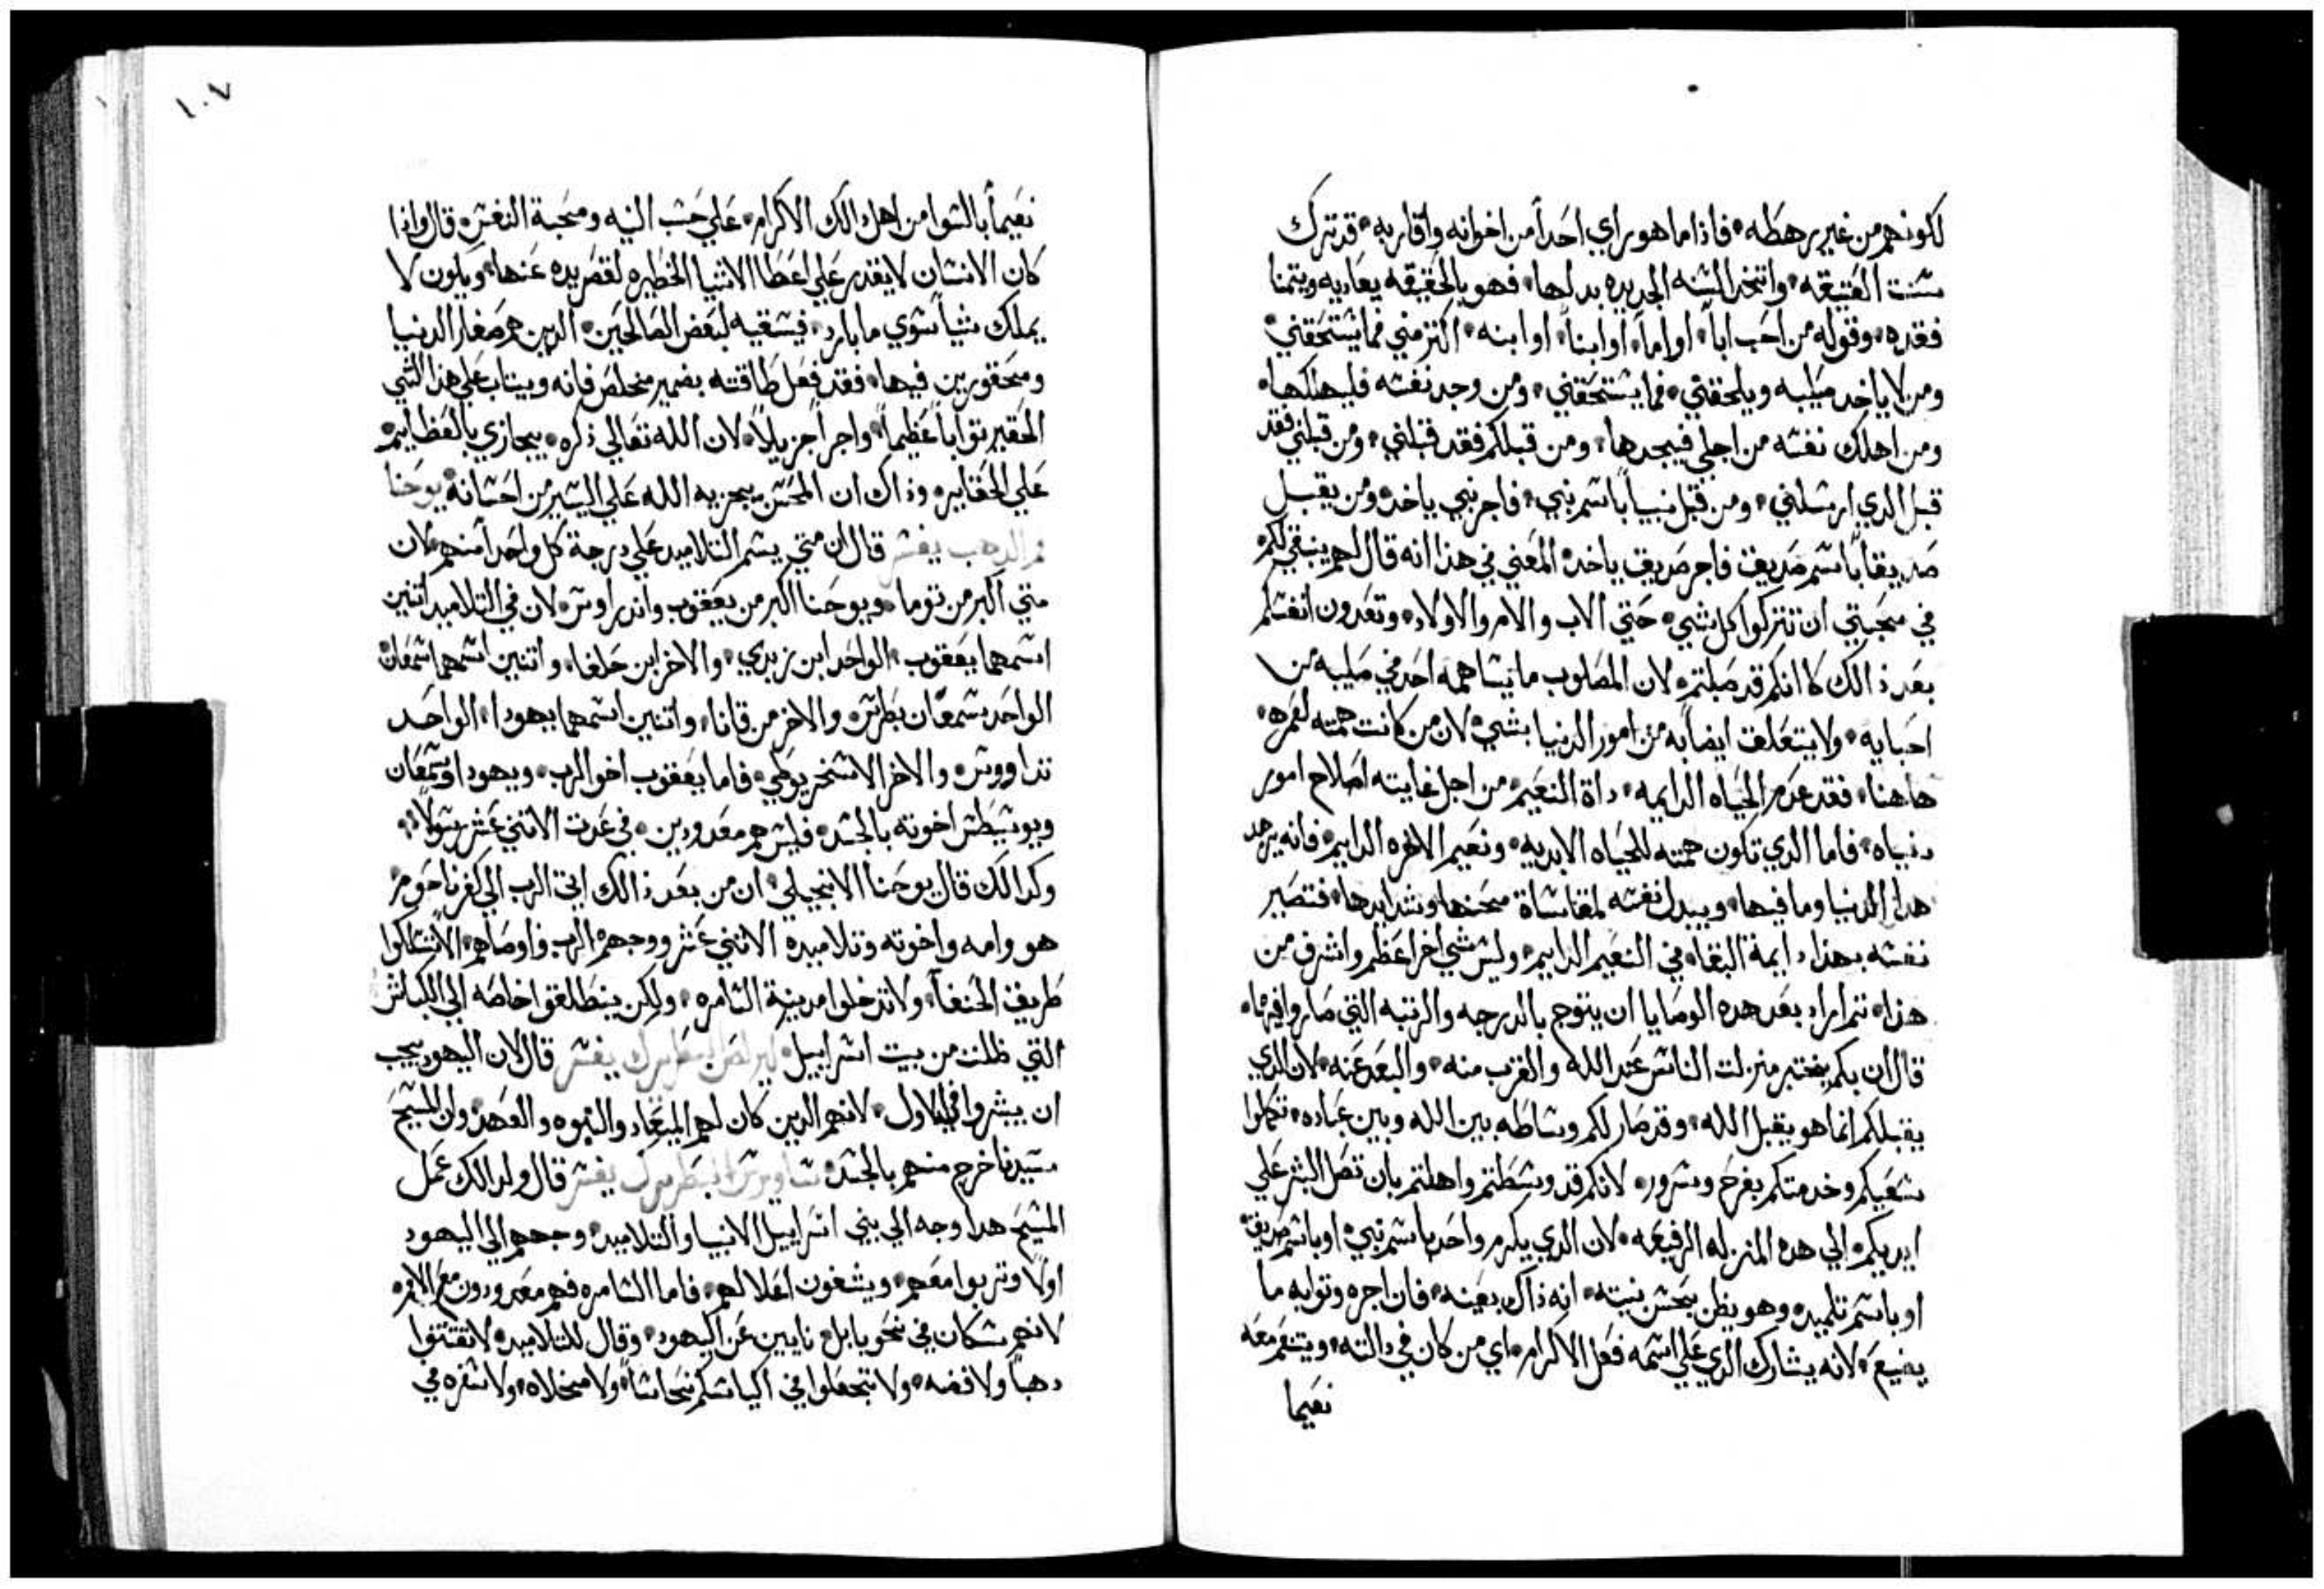 لكونهم من غير رهطه فاذا ما هو راي احداً من اخوانه واقاربه قد ترك
سنت العتيقه واتخد السنه الجديده بدلها فهو بالحقيقه يعاديه ويتمنا
فقده وقوله من احب اباً او اماً او ابناً او ابنه اكتر مني فما يستحقني
ومن لا ياخد صليبه ويلحقني فما يستحقني ومن وجد نفسه فليهلكها
ومن اهلك نفسه من اجلي فيجدها ومن قبلكم فقد قبلني ومن قبلني فقد
قبل الدي ارسلني ومن قبل نبياً باسم نبي فاجر نبي ياخد ومن يقبل
صديقاً باسم صديق فاجر صديق ياخد المعني في هذا انه قال لهم ينبغي لكم
في محبتي ان تتركوا كل شي حتي الاب والام والاولاد وتعدون انفسكم
بعد ذالك كانكم قد صلبتم لان المصلوب ما يتساهمه احد في صليبه من
احبايه ولا يتعلق ايضاً به من امور الدنيا بشي لان من كانت همته لعمره
هاهنا فقد عدم الحياه الدايمه داة النعيم من اجل غايته اصلاح امور
دنياه فاما الدي تكون همته للحياه الابديه ونعيم الاخره الدايم فانه يزهد
هدا الدنيا وما فيها ويبدل نفسه لمقاساة محنها وشدايدها فتصير
نفسه بهذا دايمة البقاء في النعيم الدايم وليس شي اخر اعظم واشرف من
هذا تم اراد بعد هده الوصايا ان يتوج بالدرجه والرتبه التي صاروا فيها
قال ان بكم يختبر منزلت الناس عند الله والقرب منه والبعد عنه لان الدي
يقبلكم انما هو يقبل الله وقد صار لكم وساطه بين الله وبين عباده تكملوا
سعيكم وخدمتكم بفرح وسرور لانكم قد وسطتم واهلتم بان تصل البشر علي
ايديكم الي هده المنزله الرفيعه لان الدي يكرم واحد باسم نبي او باسم صديق
او باسم تلميد وهو يظن بحسن نيته انه ذاك بعينه فان اجره وتوابه ما
يضيع لانه يشارك الدي علي اسمه فعل الاكرام اي من كان في دالته ويتنعم معه
نعيما
١٠٧
نعيماً بالسوا من اهل دالك الاكرام علي حسب النيه ومحبة النفس قال واذا
كان الانسان لا يقدر علي اعطا الاشيا الخطيره لقصر يده عنها ويكون لا
يملك شياً سوي ما بارد فيسقيه لبعض الصالحين الدين هم صغار الدنيا
ومحقورين فيها فقد فعل طاقته بضمير مخلص فانه ويتاب علي هذا الشي
الحقير تواباً عظيماً واجراً جزيلاً لان الله تعالي ذكره يجازي بالعظايم
علي الحقايره وذاك ان المحسن يجزيه الله علي اليسير من احسانه يوحنا
فم الدهب يفسر قال ان متي يسم التلاميد علي درجة كل واحداً منهم لان
متي اكبر من توما ويوحنا اكبر من يعقوب واندراوس لان في التلاميد اتنين
اسمهما يعقوب الواحد ابن زبدي والاخر ابن حلفا واتنين اسمهما سمعان
الواحد سمعان بطرس والاخر من قانا واتنين اسمهما يهودا الواحد
تداووس والاخر الاسخريوطي فاما يعقوب اخو الرب ويهودا وسمعان
ويوسيطس اخوته بالجسد فليس هم معدودين في عدت الاتني عشر رسولاً
وكدالك قال يوحنا الانجيلي ان من بعد ذالك اتي الرب الي كفرناحوم
هو وامه واخوته وتلاميده الاتني عشر ووجههم الرب واوصاهم الا تسلكوا
طريق الحنفاً ولا تدخلوا مدينة السامره ولكن ينطلقوا خاصه الي الكباش
التي ظلت من بيت اسراييل البطريرك يفسر قال لان اليهود يجب
ان يبشروا في الاول لانهم الدين كان لهم الميعاد والنبوه والعهد وان المسيح
سيدنا خرج منهم بالجسد ساويرس البطريرك يفسر قال ولدالك عمل
المسيح هدا وجه الي بني اسراييل الانبيا والتلاميد وجههم الي اليهود
اولاً وتربوا معهم ويشفون اعلالهم فاما السامره فهم معدودون مع الامم
لانهم سكان في نحو بابل نايبين عن اليهود وقال للتلاميد لا تقتنوا
دهباً ولا فضه ولا تجعلوا في اكياسكم نحاساً ولا مخلاه ولا سفره في